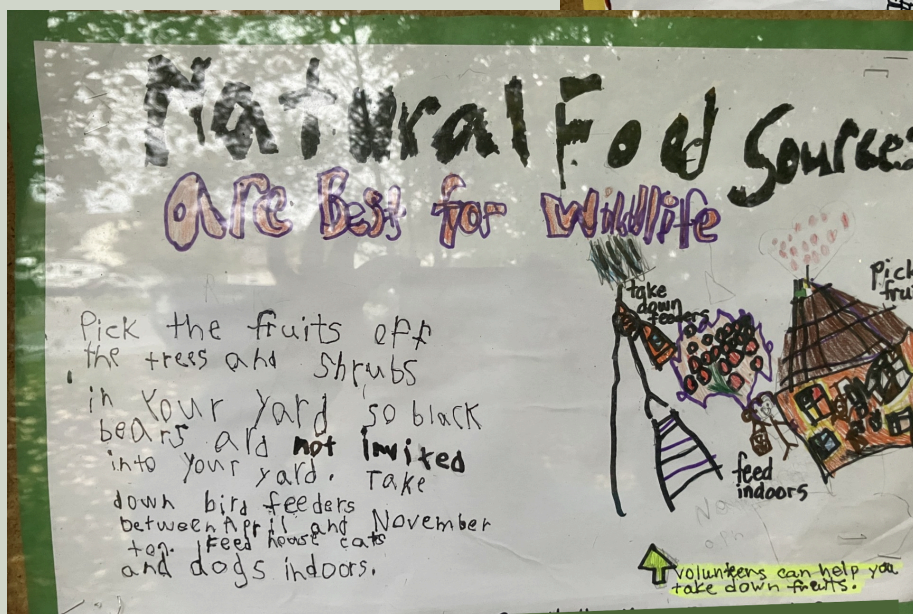 Natural Food Sources
are Best for Wildlife
Pick the fruits off
the trees and shrubs
in your yard so black
bears ard not invited
into your yard. Take
down bird feeders
between April and November
too. Feed house cats
and dogs indoors.
take
down
feeders
pick
fruit
feed
indoors
volunteers can help you
take down fruits.